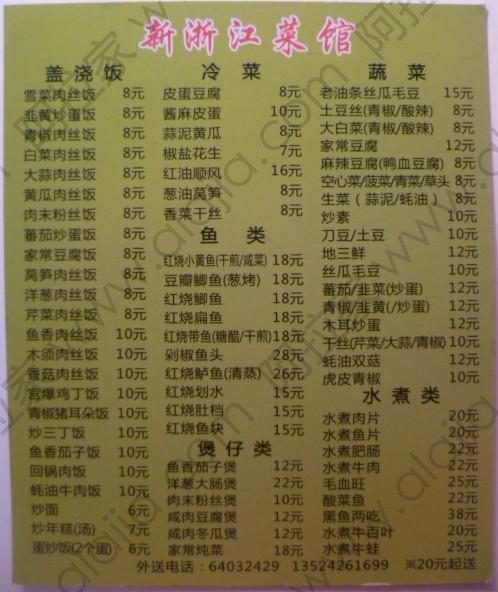 新浙江菜馆
盖浇饭
雪菜肉丝饭 8元
韭黄炒蛋饭 8元
青椒肉丝饭 8元
白菜肉丝饭 8元
大蒜肉丝饭 8元
黄瓜肉丝饭 8元
肉末粉丝饭 8元
蕃茄炒蛋饭 8元
家常豆腐饭 8元
莴笋肉丝饭 8元
洋葱肉丝饭 8元
芹菜肉丝饭 8元
鱼香肉丝饭 10元
木须肉丝饭 10元
香菇肉丝饭 10元
宫爆鸡丁饭 10元
青椒猪耳朵饭 10元
炒三丁饭 10元
鱼香茄子饭 10元
回锅肉饭 10元
蚝油牛肉饭 10元
炒面 6元
炒年糕(汤) 7元
蛋炒饭(2个蛋) 6元
冷菜
皮蛋豆腐 8元
酱麻皮蛋 10元
蒜泥黄瓜 8元
椒盐花生 7元
红油顺风 16元
葱油莴笋 8元
香菜干丝 8元
鱼类
红烧小黄鱼(干煎/咸菜) 18元
豆瓣鲫鱼(葱烤) 18元
红烧鲫鱼 18元
红烧扁鱼 18元
红烧带鱼(糖醋/干煎) 18元
剁椒鱼头 28元
红烧鲈鱼(清蒸) 26元
红烧划水 15元
红烧肚档 15元
红烧鱼块 15元
煲仔类
鱼香茄子煲 12元
洋葱大肠煲 22元
肉末粉丝煲 10元
咸肉豆腐煲 12元
咸肉冬瓜煲 12元
家常炖菜 18元
蔬菜
老油条丝瓜毛豆 15元
土豆丝(青椒/酸辣) 8元
大白菜(青椒/酸辣) 8元
家常豆腐 12元
麻辣豆腐(鸭血豆腐) 8元
空心菜/菠菜/青菜/草头 8元
生菜(蒜泥/蚝油) 8元
炒素 10元
刀豆/土豆 10元
地三鲜 12元
丝瓜毛豆 10元
蕃茄/韭菜(炒蛋) 12元
青椒/韭黄(/炒蛋) 12元
木耳炒蛋 12元
干丝(芹菜/大蒜/青椒) 10元
蚝油双菇 12元
虎皮青椒 10元
水煮类
水煮肉片 20元
水煮鱼片 20元
水煮肥肠 22元
水煮牛肉 22元
毛血旺 25元
酸菜鱼 22元
黑鱼两吃 38元
水煮牛百叶 20元
水煮牛蛙 25元
外送电话：64032429 13524261699 ※20元起送